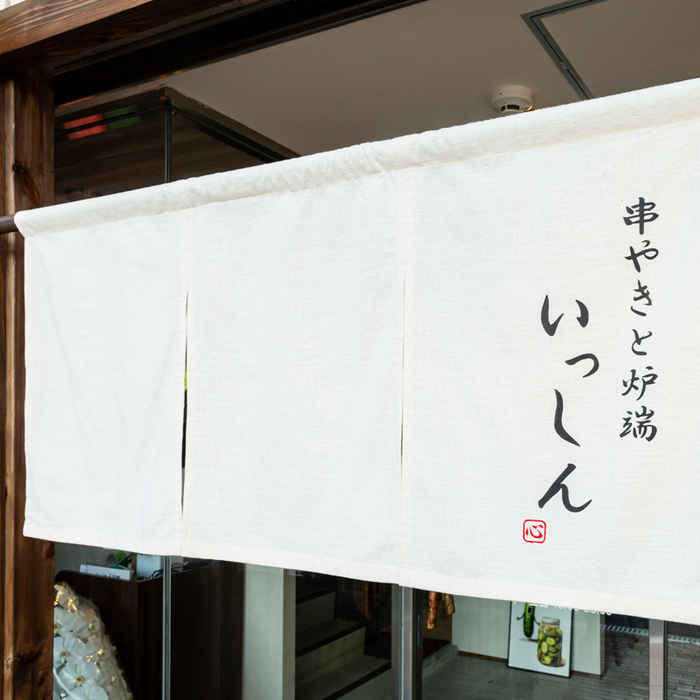 串やきと炉端
いっしん
心